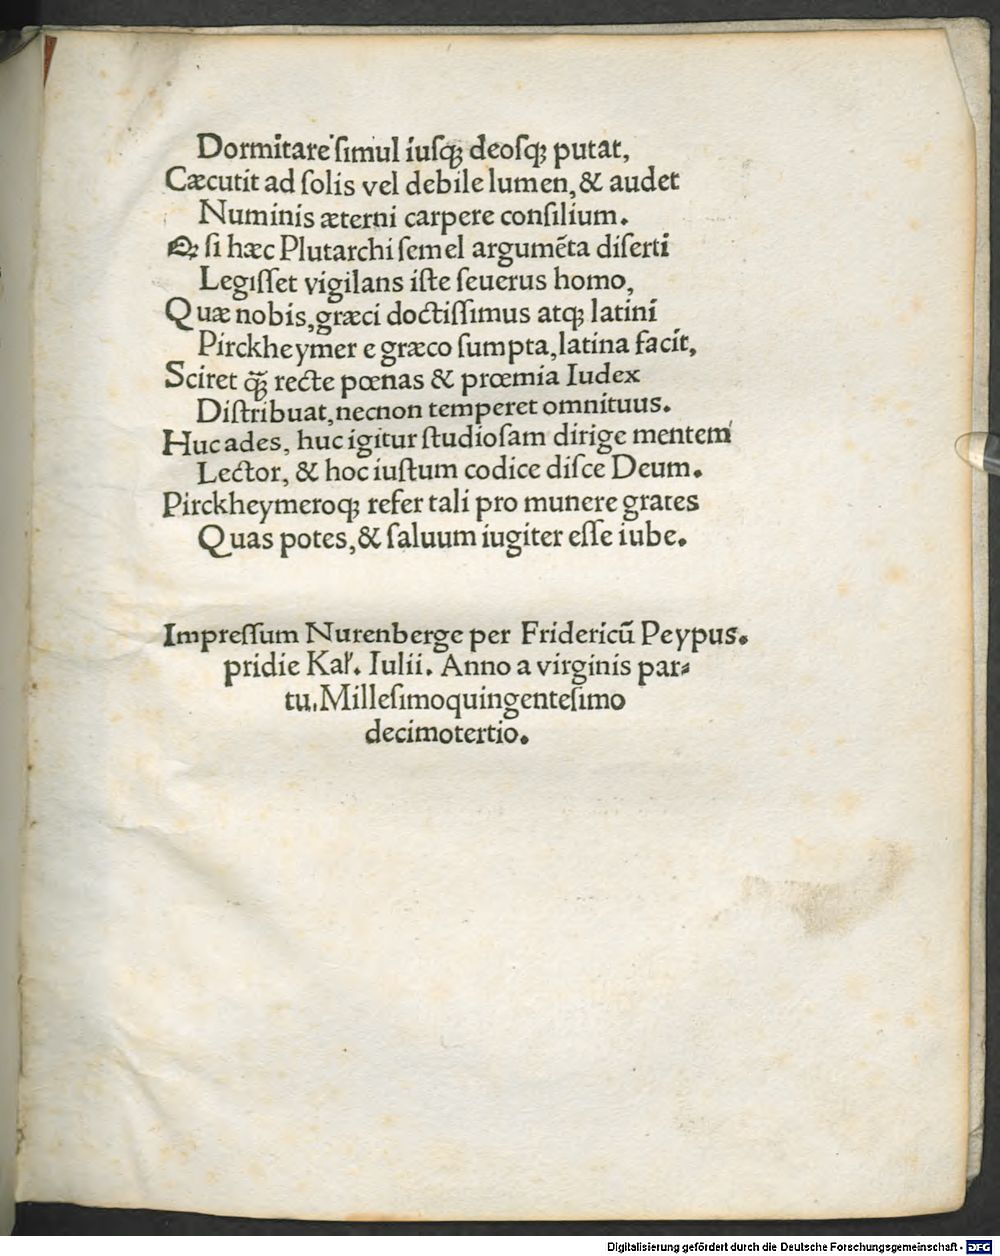 Dormitare ſimul iuſqꝫ deoſqꝫ putat,
Cæcutit ad ſolis vel debile lumen, & audet
Numinis æterni carpere conſilium.
Qꝫ ſi hæc Plutarchi ſemel argumẽta diſerti
Legiſſet vigilans iſte ſeuerus homo,
Quæ nobis, græci doctiſſimus atqꝫ latini
Pirckheymer e græco ſumpta, latina facit,
Sciret qꝫ̃ recte pœnas & prœmia Iudex
Diſtribuat, necnon temperet omnituus.
Huc ades, huc igitur ſtudioſam dirige mentem
Lector, & hoc iuſtum codice diſce Deum.
Pirckheymeroqꝫ refer tali pro munere grates
Quas potes, & ſaluum iugiter eſſe iube.
Impreſſum Nurenberge per Fridericũ Peypus.
pridie Kal̕. Iulii. Anno a virginis par⸗
tu, Milleſimoquingenteſimo
decimotertio.
Digitalisierung gefördert durch die Deutsche Forschungsgemeinschaft - DFG